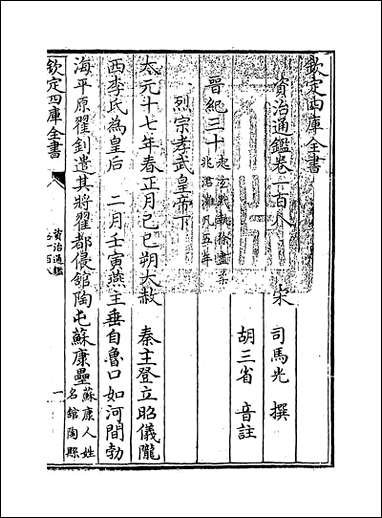 欽定四庫全書
資治通鑑卷一百八
宋 司馬光 撰
胡三省 音註
晉紀三十 起玄黓執徐盡柔兆涒灘凡五年
烈宗孝武皇帝下
太元十七年春正月己巳朔大赦 秦主登立昭儀隴
西李氏為皇后 二月壬寅燕主垂自魯口如河間勃
海平原翟釗遣其將翟都侵舘陶屯蘇康壘 蘇康人姓名舘陶縣
欽定四庫全書 資治通鑑 卷一百八 一